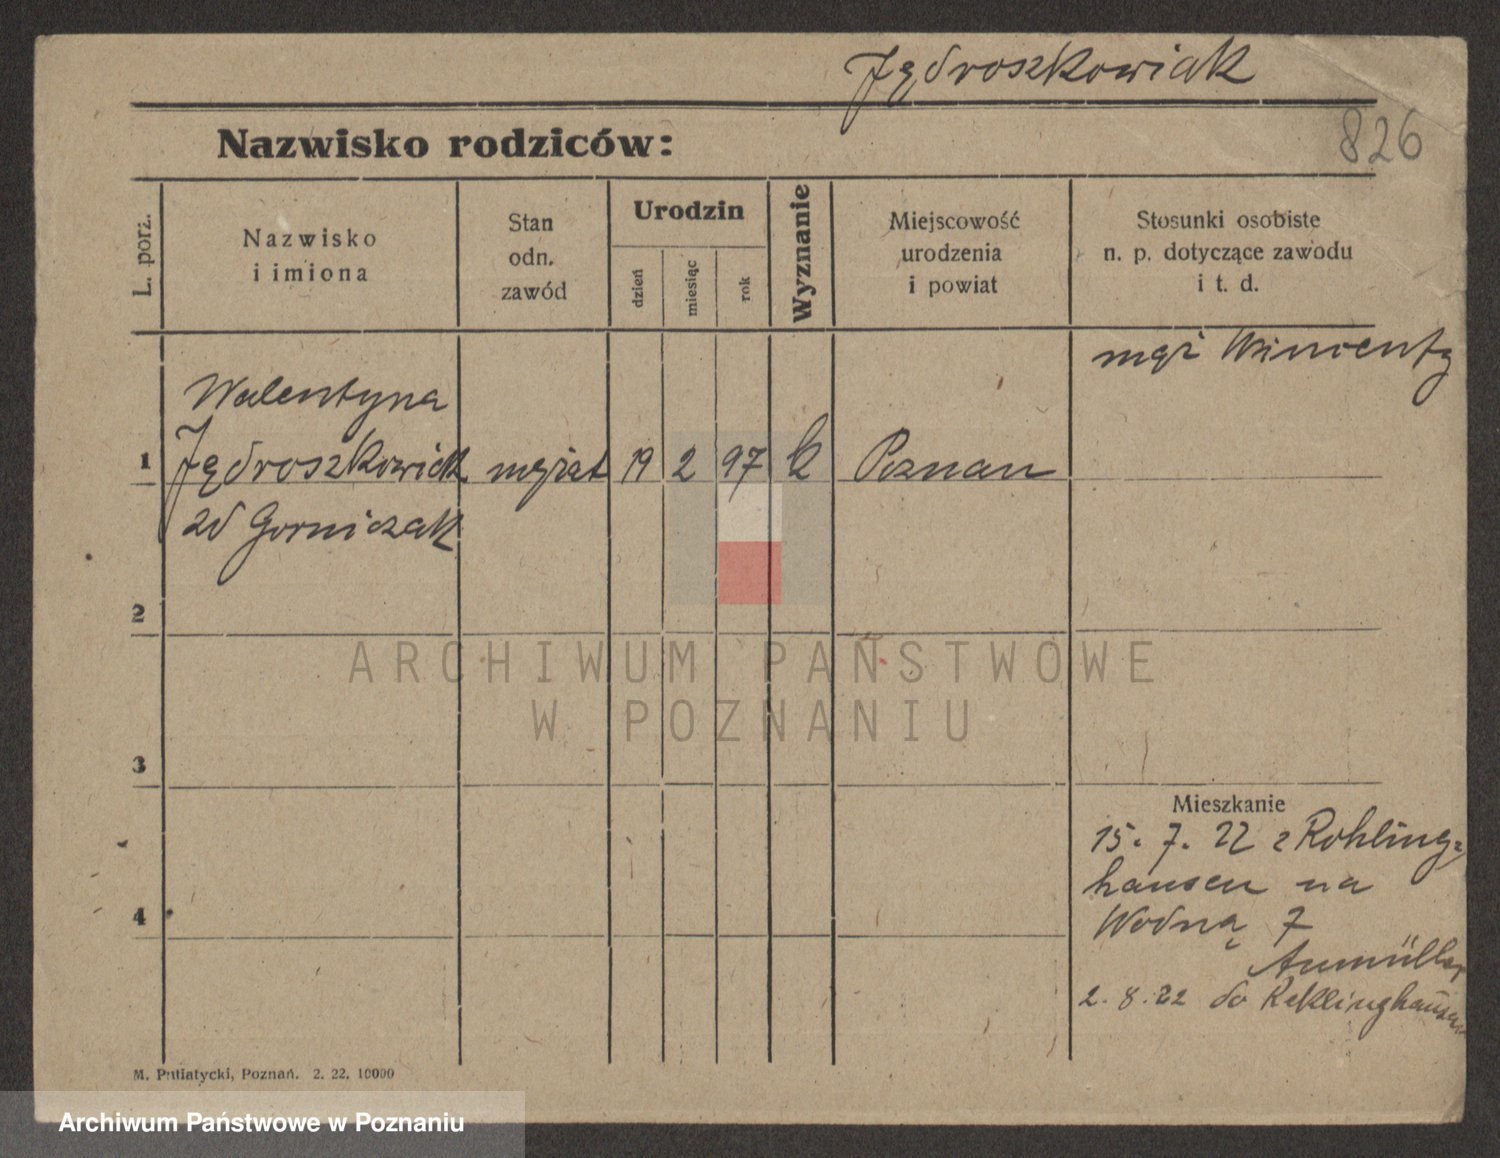 Jędroszkowiak
826
Nazwisko rodziców:
L. porz.
Nazwisko
i imiona
Stan
odn.
zawód
Urodzin
dzień
miesiąc
rok
Wyznanie
Miejscowość
urodzenia
i powiat
Stosunki osobiste
n. p. dotyczące zawodu
i t. d.
mąż Wincenty
Walentyna
1 Jędroszkowiak mężat 19 2 97 k Poznan
zd Gorniczak
2
ARCHIWUM PAŃSTWOWE
W POZNANIU
3
Mieszkanie
15. 7. 22 z Rohling=
hausen na
4
Wodną 7
Aumüller
2. 8. 22 do Reklinghausen
M. Putiatycki, Poznań. 2. 22. 10000
Archiwum Państwowe w Poznaniu